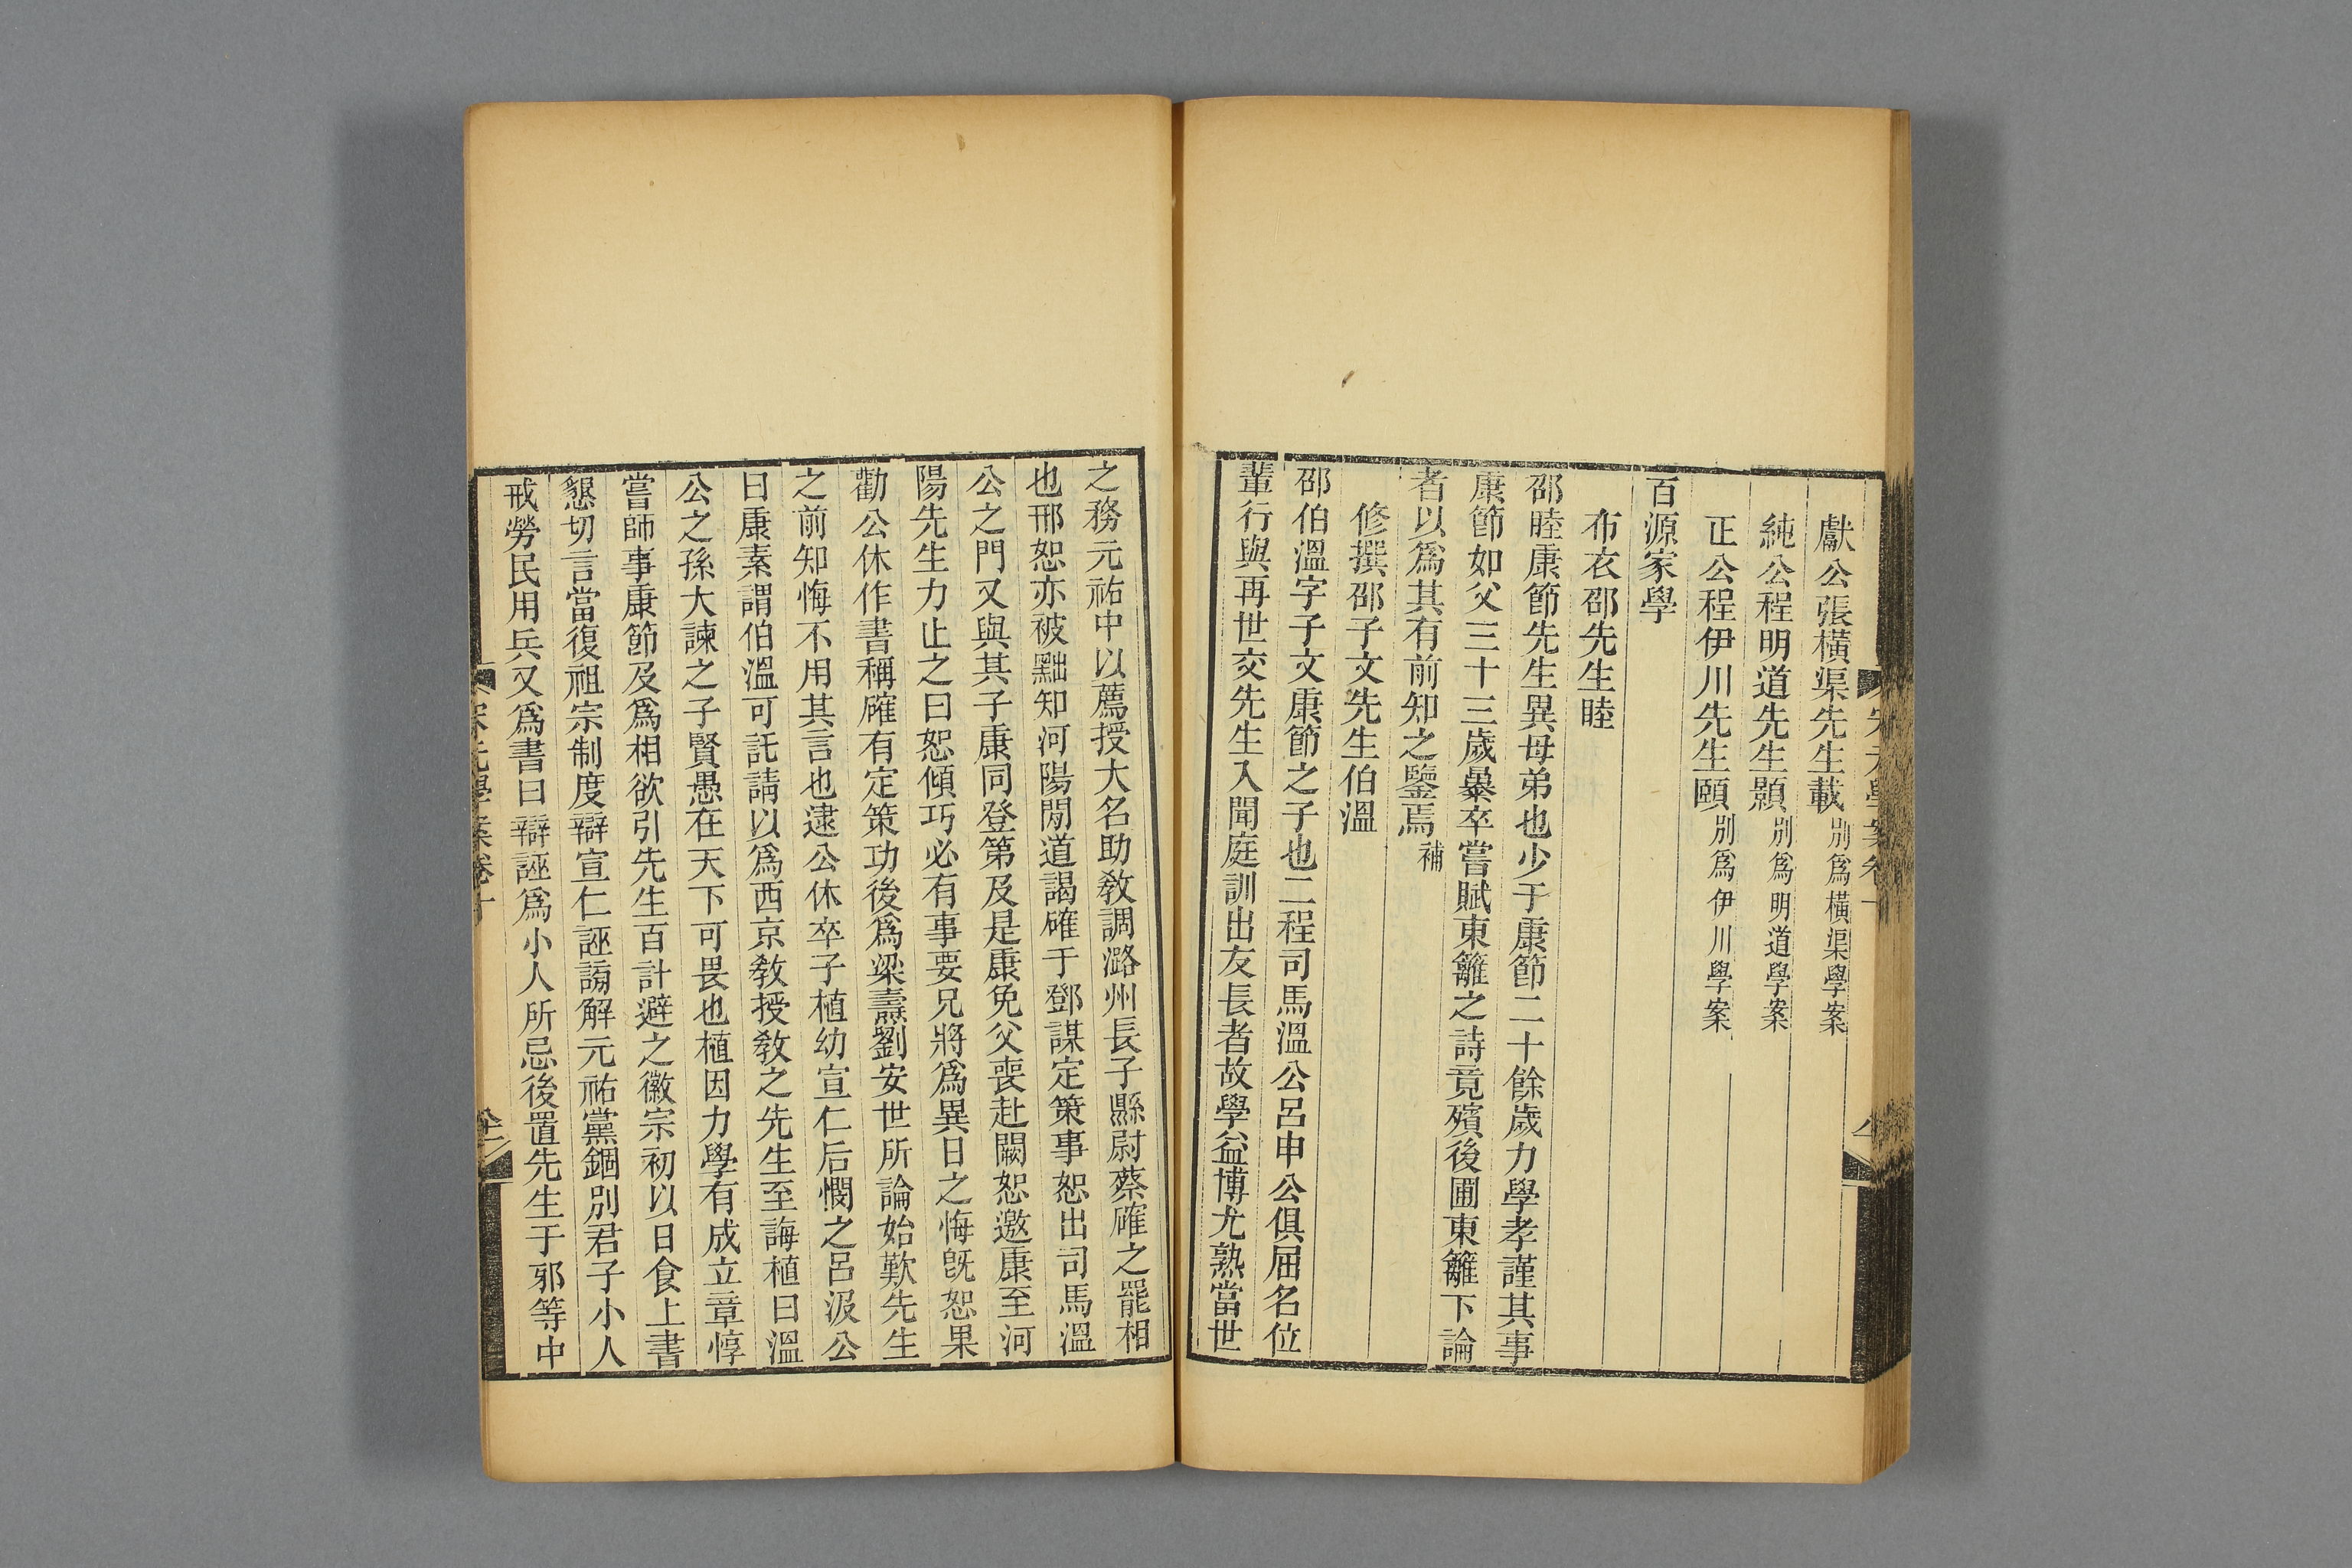 獻公張橫渠先生載別爲橫渠學案
純公程明道先生顥別爲明道學案
正公程伊川先生頤別爲伊川學案
百源家學
布衣邵先生睦
邵睦康節先生異母弟也少于康節二十餘歲力學孝謹其事
康節如父三十三歲暴卒嘗賦東籬之詩竟殯後圃東籬下論
者以爲其有前知之鑒焉補
修撰邵子文先生伯溫
邵伯溫字子文康節之子也二程司馬溫公呂申公俱屈名位
輩行與再世交先生入聞庭訓出友長者故學益博尤熟當世
之務元祐中以薦授大名助教調潞州長子縣尉蔡確之罷相
也邢恕亦被黜知河陽閒道謁確于鄧謀定策事恕出司馬溫
公之門又與其子康同登第及是康免父喪赴闕恕邀康至河
陽先生力止之曰恕傾巧必有事要兄將爲異日之悔旣恕果
勸公休作書稱確有定策功後爲梁燾劉安世所論始歎先生
之前知悔不用其言也逮公休卒子植幼宣仁后憫之呂汲公
曰康素謂伯溫可託請以爲西京教授教之先生至誨植曰溫
公之孫大諫之子賢愚在天下可畏也植因力學有成立章惇
嘗師事康節及爲相欲引先生百計避之徽宗初以日食上書
懇切言當復祖宗制度辯宣仁誣謗解元祐黨錮別君子小人
戒勞民用兵又爲書曰辯誣爲小人所忌後置先生于邪等中
宋元學案卷十